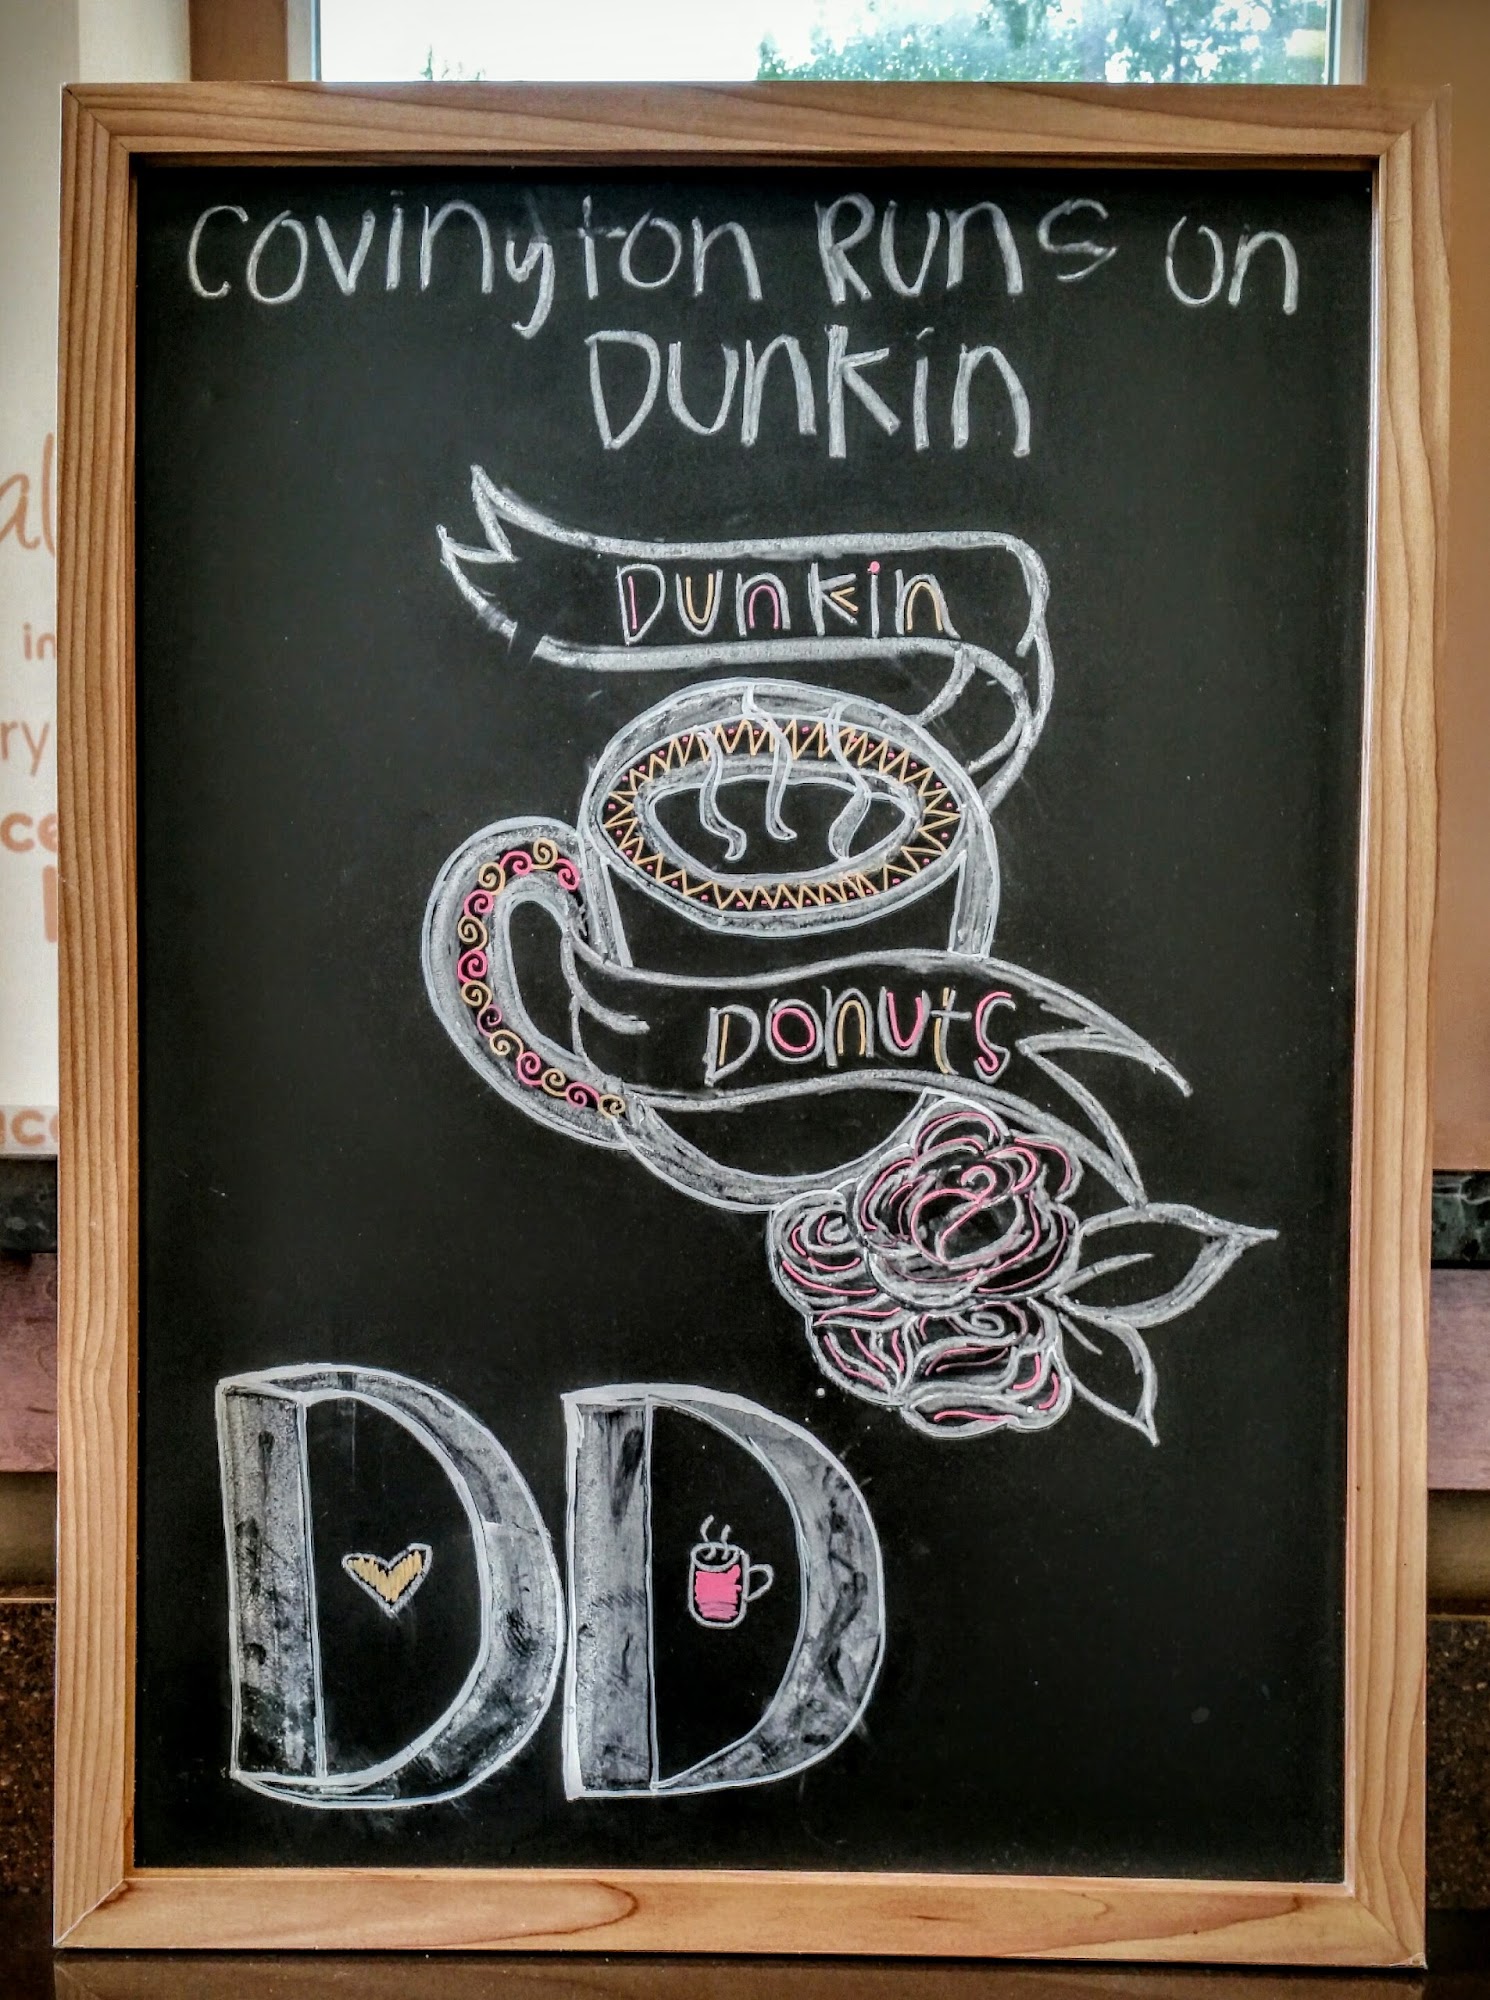 Covington Runs on
Dunkin
Dunkin
Donuts
DD